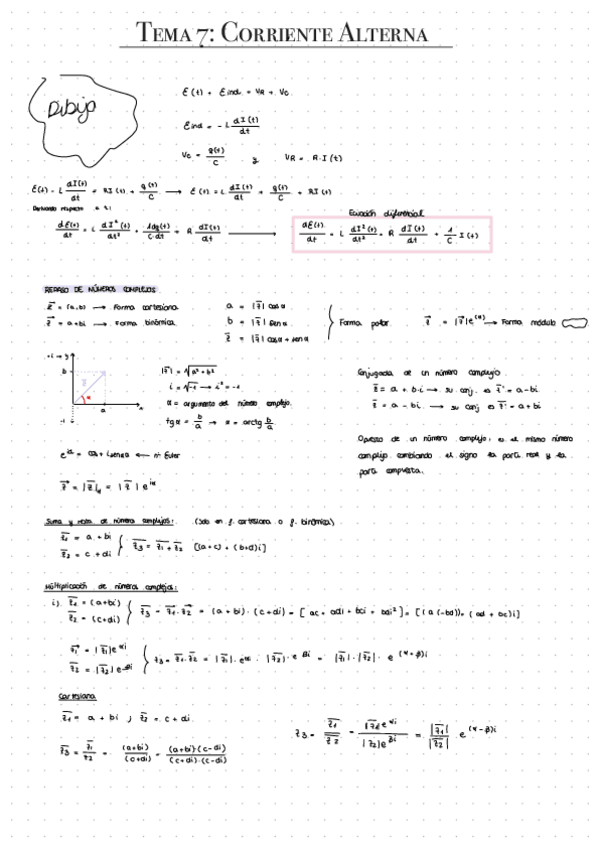 TEMA 7: CORRIENTE ALTERNA
Dibujo
E(t) + Eind = VR + Vc
Eind = - L dI(t)/dt
Vc = q(t)/C y VR = R·I(t)
E(t) - L dI(t)/dt = RI(t) + q(t)/C → E(t) = L dI(t)/dt + q(t)/C + RI(t)
Derivando respecto a t:
Ecuación diferencial
dE(t)/dt = L dI²(t)/dt² + 1dq(t)/C·dt + R dI(t)/dt → dE(t)/dt = L dI²(t)/dt² = R dI(t)/dt + 1/C I(t)
REPASO DE NÚMEROS COMPLEJOS
z = (a,b) → Forma cartesiana
z = a+bi → Forma binómica
a = |z| cos α
b = |z| sen α
z = |z| cos α + sen α
Forma polar
z = |z|e^(α) → Forma módulo
+i → y
b
z
α
a
x
-i
|z| = √a²+b²
i = √-1 → i² = -1
α = argumento del número complejo.
tg α = b/a → α = arctg b/a
Conjugada de un número complejo
z = a + b·i → su conj. es z* = a-bi.
z = a - bi. → su conj es z* = a+bi
Opuesto de un número complejo: es el mismo número
complejo cambiando el signo la parte real y la
parte compuesta.
Euler
z = |z|α = |z| e^iα
Suma y resta de números complejos: (Solo en f. cartesiana o f. binómica)
z1 = a + bi
z2 = c + di
z3 = z1 + z2 [(a+c) + (b+d)i]
Multiplicación de números complejos:
i) z1 = (a+bi)
z2 = (c+di)
z3 = z1·z2 = (a+bi)·(c+di) = [ac + adi + bci + bdi²] = [(a(-bd)) + (ad + bc)i]
z1 = |z1|e^αi
z2 = |z2|e^βi
z3 = z1·z2 = |z1|·e^αi·|z2|·e^βi = |z1|·|z2|·e^(α+β)i
Cartesiana
z1 = a + bi ; z2 = c + di.
z3 = z1/z2 = (a+bi)/(c+di) = (a+bi)·(c-di)/(c+di)·(c-di)
z3 = z1/z2 = |z1|e^αi/|z2|e^βi = |z1|/|z2| e^(α-β)i